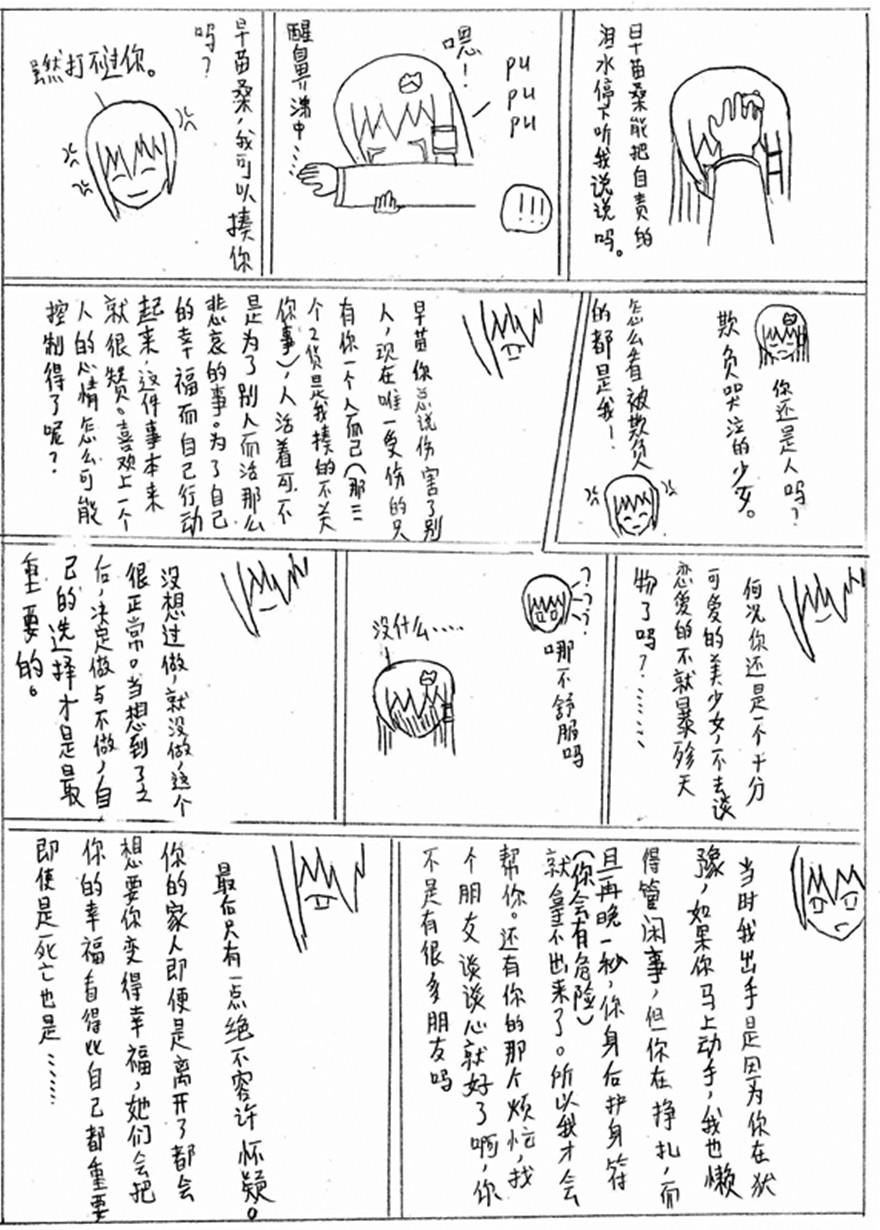 早苗桑能把自责的
泪水停下听我说说吗。
嗯！
pu
pu
pu
！！！
醒鼻涕中……
早苗桑，我可以揍你
吗？
虽然打不过你。
你还是人吗？
欺负哭泣的少女。
怎么看被欺负
的都是我！
早苗你总说伤害了别
人，现在唯一受伤的只
有你一个人而已（那三
个2货是我揍的不关
你事），人活着可不
是为了别人而活那么
悲哀的事。为了自己
的幸福而自己行动
起来，这件事本来
就很赞。喜欢上一个
人的心情怎么可能
控制得了呢？
何况你还是一个十分
可爱的美少女，不去谈
恋爱的不就暴殄天
物了吗？………
？
？
？
哪不舒服吗
没什么……
没想过做，就没做，这个
很正常。当想到了之
后，决定做与不做，自
己的选择才是最
重要的。
当时我出手是因为你在犹
豫，如果你马上动手，我也懒
得管闲事，但你在挣扎，而
且再晚一秒，你身后护身符
（你会有危险）
就拿不出来了。所以我才会
帮你。还有你的那个烦恼，找
个朋友谈谈心就好了啊，你
不是有很多朋友吗
最后只有一点绝不容许怀疑。
你的家人即便是离开了都会
想要你变得幸福，她们会把
你的幸福看得比自己都重要
即使是死亡也是……